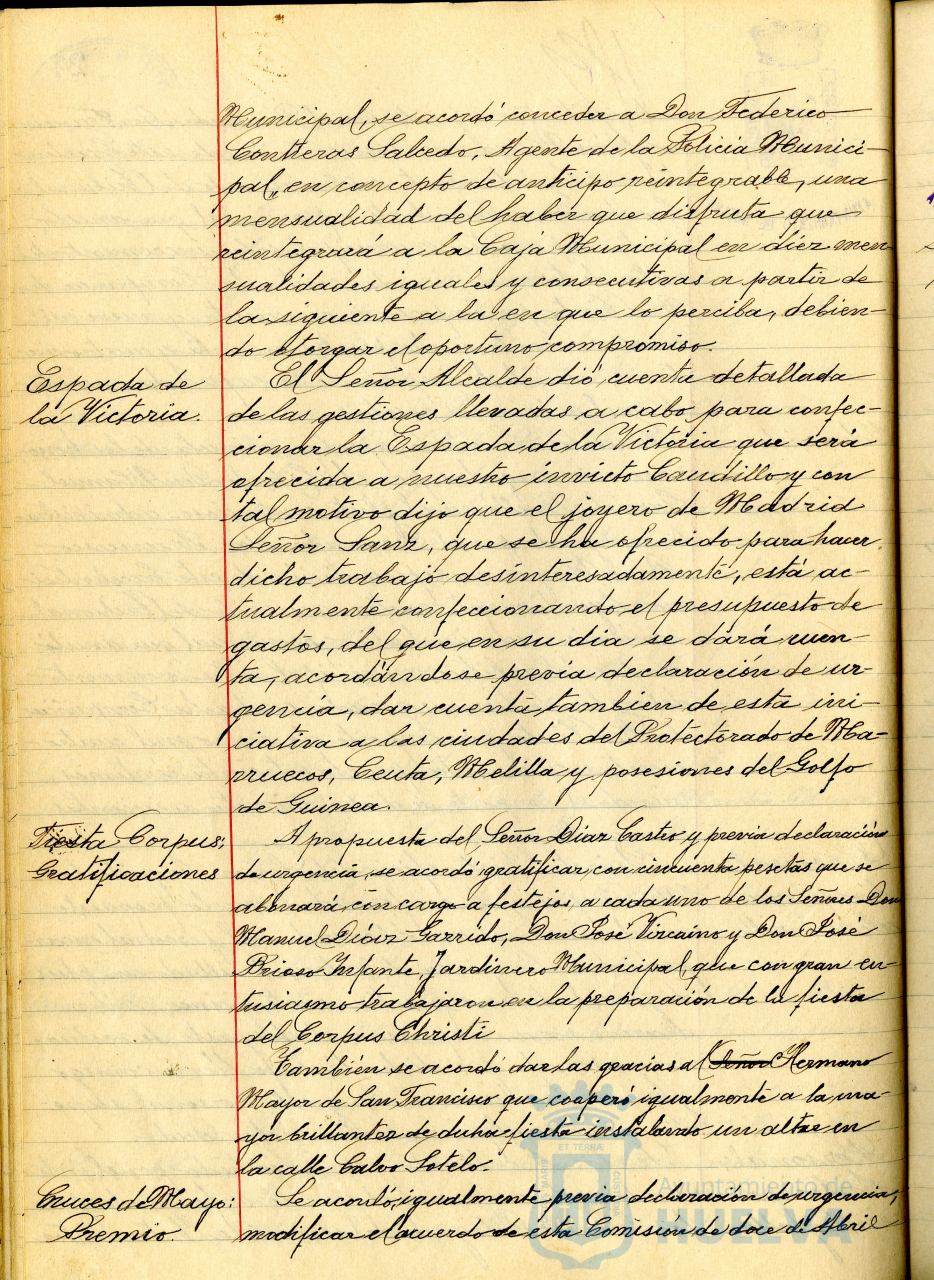 Municipal, se acordó conceder a Don Federico
Contreras Salcedo, Agente de la Policia Munici-
pal, en concepto de anticipo reintegrable, una
mensualidad del haber que disfruta que
reintegrará a la Caja Municipal en diez men-
sualidades iguales y consecutivas a partir de
la siguiente a la en que lo perciba, debien-
do otorgar el oportuno compromiso.
Espada de
la Victoria.
El Señor Alcalde dió cuenta detallada
de las gestiones llevadas a cabo para confec-
cionar la Espada de la Victoria que será
ofrecida a nuestro invicto Caudillo y con
tal motivo dijo que el joyero de Madrid
Señor Sanz, que se ha ofrecido para hacer
dicho trabajo desinteresadamente, está ac-
tualmente confeccionando el presupuesto de
gastos, del que en su dia se dará cuen-
ta, acordándose previa declaración de ur-
gencia, dar cuenta tambien de esta ini-
ciativa a las ciudades del Protectorado de Ma-
rruecos, Ceuta, Melilla y posesiones del Golfo
de Guinea.
Fiesta Corpus:
Gratificaciones
A propuesta del Señor Diaz Castro y previa declaración
de urgencia, se acordó gratificar con cincuenta pesetas que se
abonará con cargo a festejos, a cada uno de los Señores Don
Manuel Díaz Garrido, Don José Vizcaino y Don José
Brioso Infante, Jardinero Municipal, que con gran en-
tusiasmo trabajaron en la preparación de la fiesta
del Corpus Christi
También se acordó dar las gracias al Señor Hermano
Mayor de San Francisco que cooperó igualmente a la ma-
yor brillantez de dicha fiesta instalando un altar en
la calle Calvo Sotelo.
Cruces de Mayo:
Premio.
Se acordó, igualmente previa declaración de urgencia,
modificar el acuerdo de esta Comisión de doce de Abril
Ayuntamiento de
HUELVA